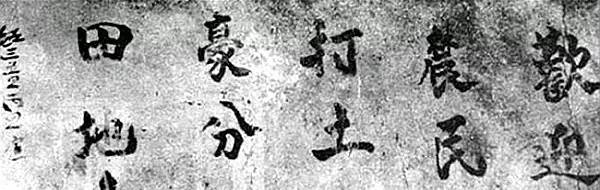 歡迎
農民
打土
豪分
田地